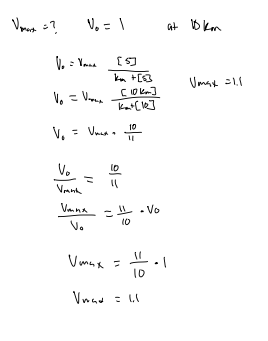 Vmax = ? V₀ = 1 at 10 Km
V₀ = Vmax [S] / Km + [S]
Vmax = 1.1
V₀ = Vmax [10 Km] / Km + [10]
V₀ = Vmax · 10/11
V₀ / Vmax = 10 / 11
Vmax / V₀ = 11 / 10 · V₀
Vmax = 11 / 10 · 1
Vmax = 1.1